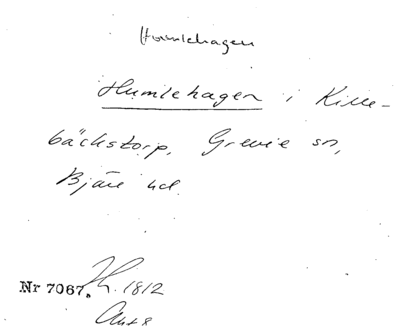 Humlehagen
Humlehagen i Kille-
bäckstorp, Grevie sn,
Bjäre hd.
Nr 7067. 1812
Akt 8